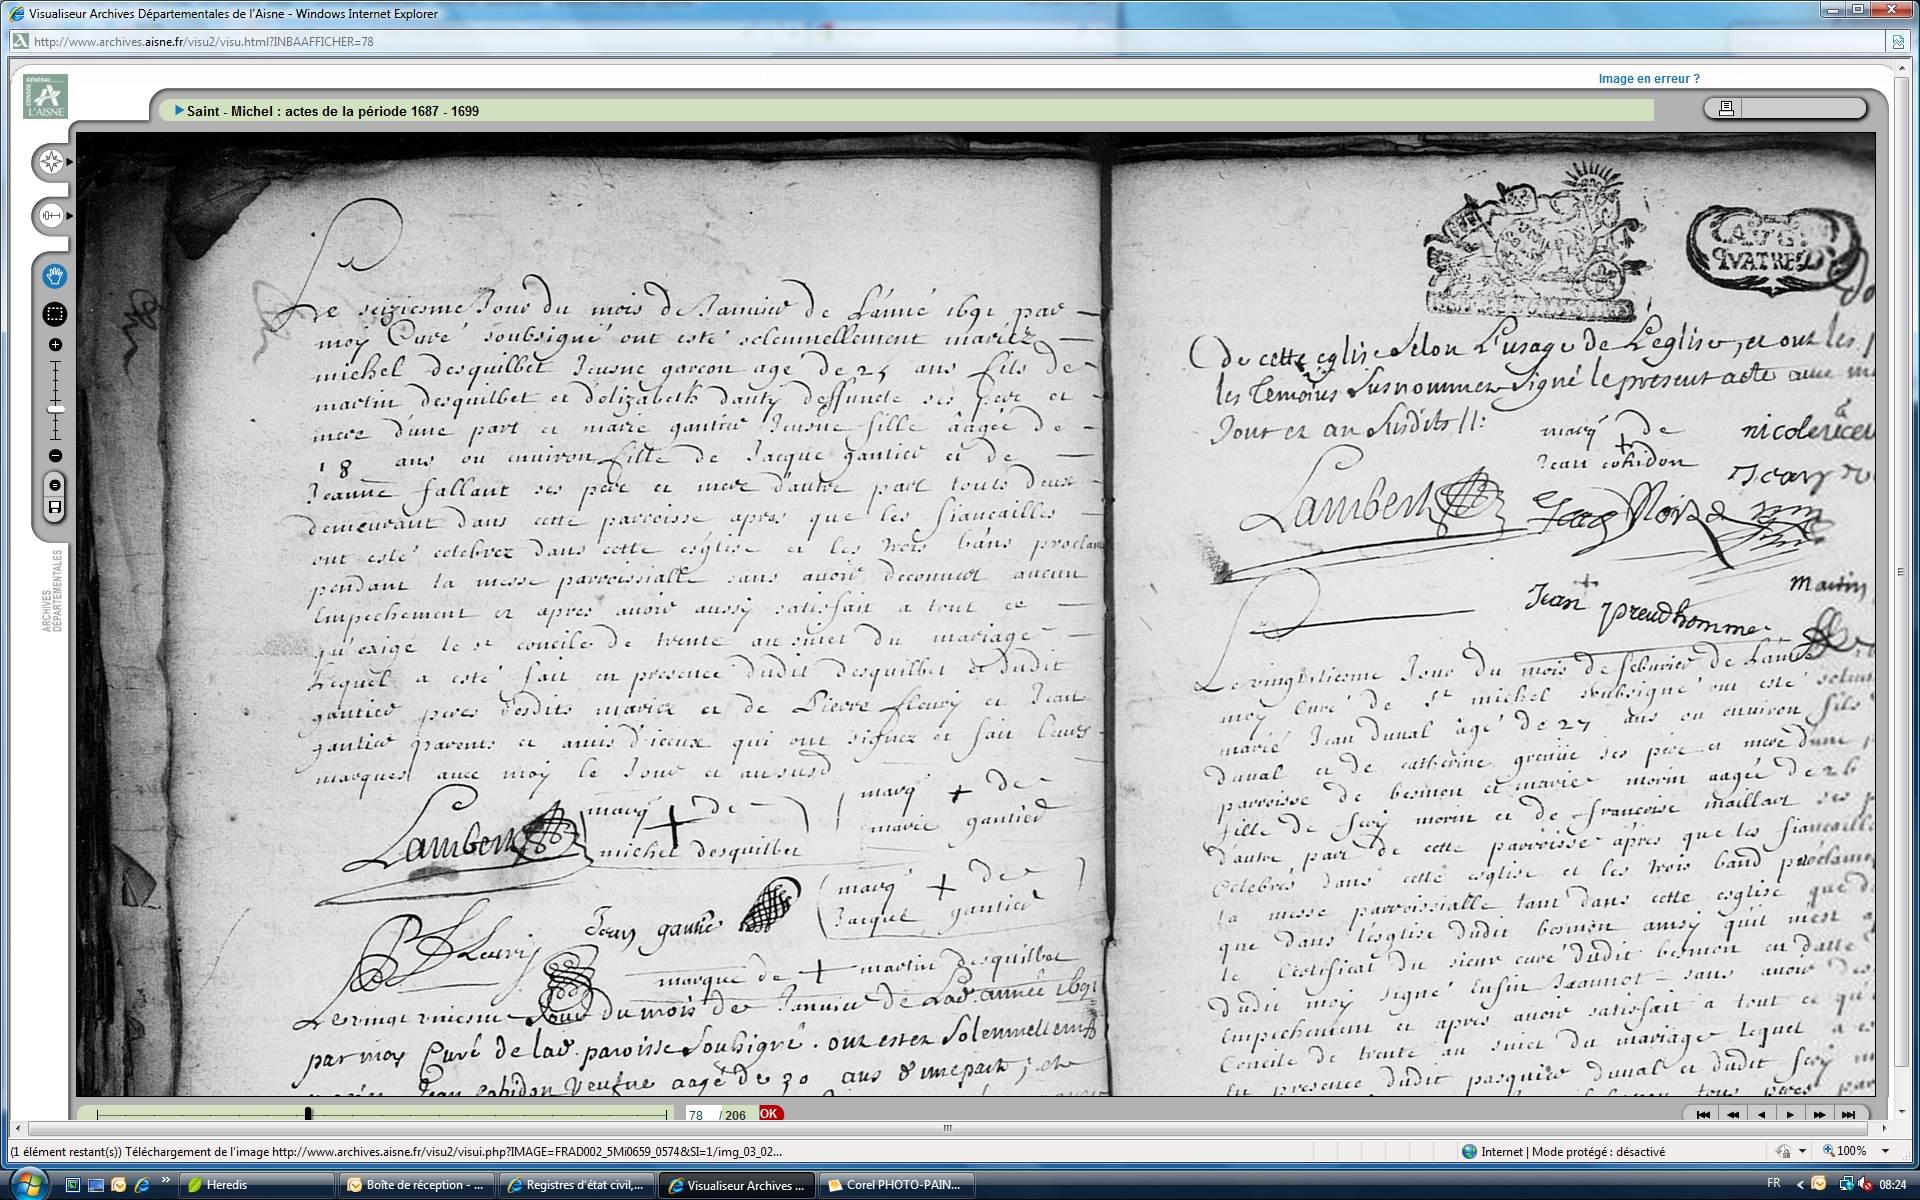 Visualiseur Archives Départementales de l'Aisne - Windows Internet Explorer
http://www.archives.aisne.fr/visu2/visu.html?INBAAFFICHER=78
Image en erreur ?
GÉNÉRAL
CONSEIL
L'AISNE
Saint - Michel : actes de la période 1687 - 1699
ARCHIVES
DÉPARTEMENTALES
Le seiziesme Jour du mois de Janvier de L'année 1691 par
moy Curé soubsigné ont esté solemnellement mariez
michel desquilbet Jeusne garcon agé de 25 ans fils de
martin desquilbet et d'elizabeth dauty deffuncte ses pere et
mere d'une part et marie gautier Jeusne fille âagée de
18 ans ou environ fille de Jacque gautier et de
Jeanne fallant ses pere et mere d'autre part touts deux
demeurant dans cette parroisse apres que les fiancailles
ont esté celebrez dans cette esglise et les trois bans proclam
pendant la messe parroissialle sans avoir decouvert aucun
Empechement et apres avoir aussy satisfait a tout ce
qu'exige le st concile de trente au sujet du mariage
Lequel a esté fait en presence dudit desquilbet & dudit
gautier peres desdits mariez et de Pierre fleury et Jean
gautier parents et amis d'iceux qui ont signez et fait leurs
marques avec moy le Jour et an susd
Lambert
marq + de
michel desquilbet
marq + de
marie gautier
fleury
Jean gautie
marq + de
Jacque gautier
marque de + martin desquilbet
Le vingt Jour du mois de Janvier de Lad. année 1691
par moy Curé de lad. paroisse Soubsigné. ont estez Solemnellemt
Jean cohidon veufve aagé de 30 ans d'une part; et
AVG
QVATRE
de cette eglise selon L'usage de L'eglise, et ont les
les Temoins susnommez signé le present acte avec
Jour et an susdits //:
marq + de
Jean cohidon
nicole
Jean
Lambert
Jean preudhomme
martin
Le vingtiesme Jour du mois de febvrier de L'anné
moy Curé de St michel soubsigné ont esté
marié Jean duval âgé de 27 ans ou environ fils
duval et de catherine ses pere et mere d'une
parroisse de besmon et marie morin aagée de 26
fille de morin et de francoise maillart ses
d'autre part de cette parroisse apres que les fiancaille
Celebrés dans cette esglise et les trois band proclame
la messe parroissialle tant dans cette esglise que
que dans l'esglise dudit besmon ainsy qu'il n'est
le Certificat du sieur curé dudit besmon en datte
dudit moy signé Jeannot sans avoir
Empechement et apres avoir satisfait a tout ce qu'
Concile de trente au sujet du mariage lequel a
En presence dudit pasquier duval et dudit
78 / 206 OK
(1 élément restant(s)) Téléchargement de l'image http://www.archives.aisne.fr/visu2/visui.php?IMAGE=FRAD002_5Mi0659_0574&SI=1/img_03_02...
Internet | Mode protégé : désactivé
100%
Heredis
Boîte de réception - ...
Registres d'état civil,...
Visualiseur Archives ...
Corel PHOTO-PAIN...
FR
08:24